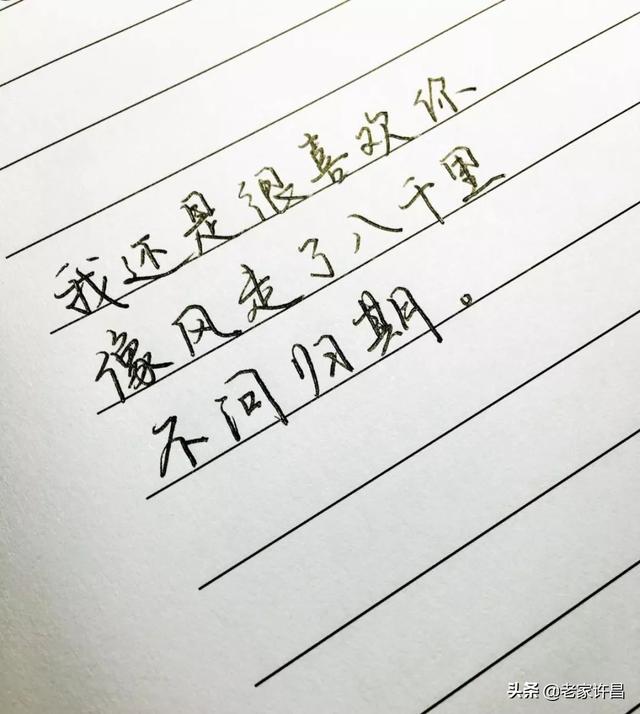 我还是很喜欢你
像风走了八千里
不问归期。
头条 @老家许昌